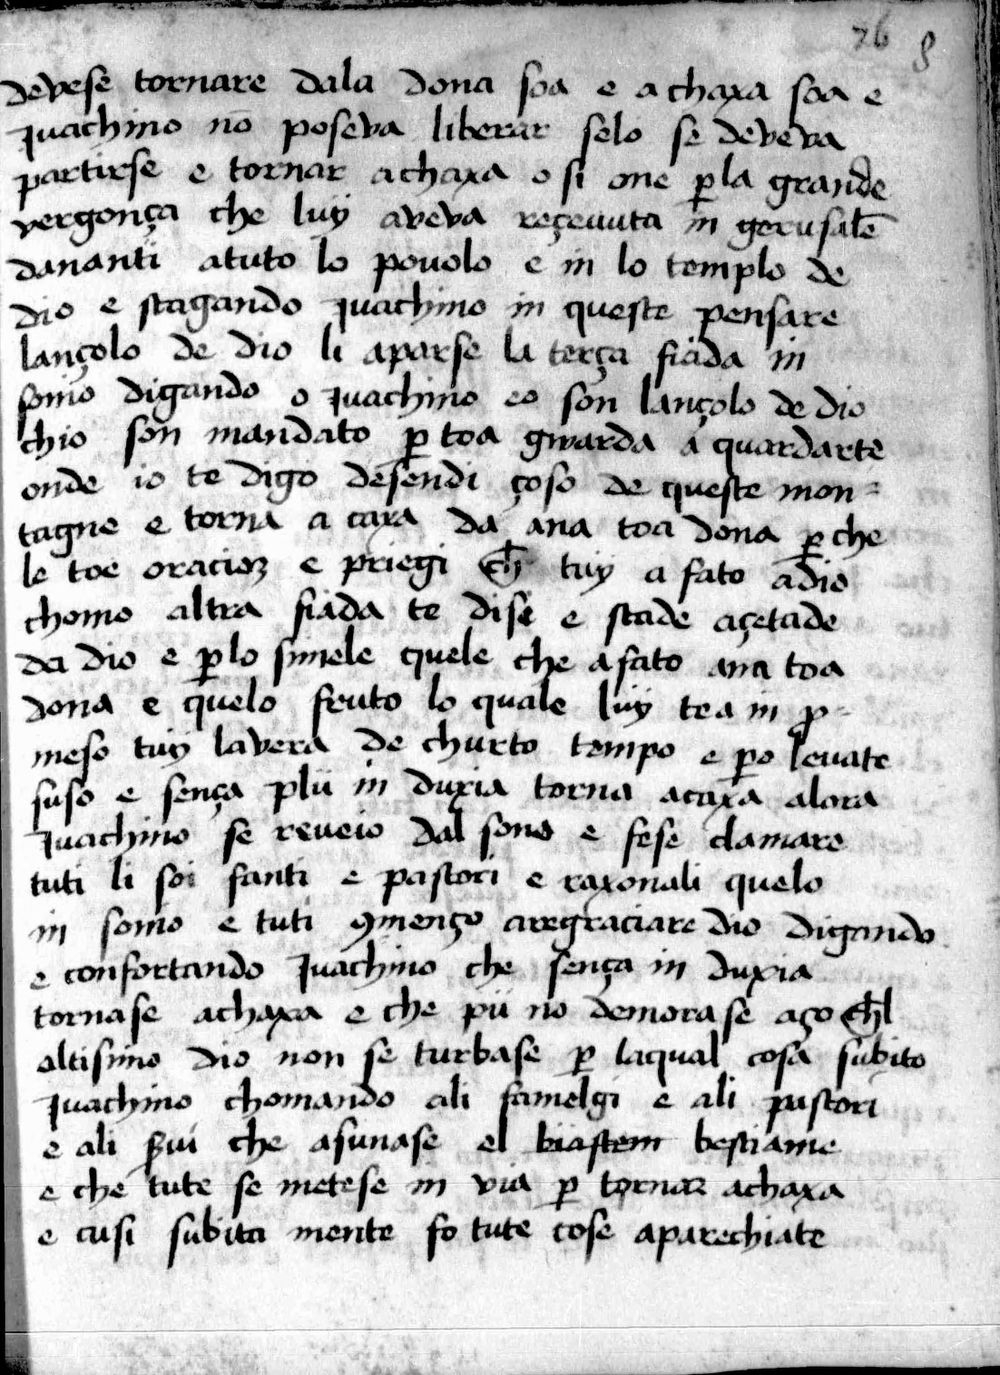 76 8
devese tornare dala dona soa e a chaxa soa e
Juachino nō poseva liberar selo se deveva
partirse e tornar a chaxa o si one p̲ la grande
vergonça che luÿ aveva reçevuta in gerusalē
dananti atuto lo povolo e in lo templo de
dio e stagando Juachino in queste pensare
lançolo de dio li aparse la terça fiada in
sonio digando o Juachino eo son lançolo de dio
chio son mandato p̲ toa gwarda a quardarte
onde io te digo desendi çoso de queste mon=
tagne e torna a caxa da ana toa dona p̲ che
le toe oracioꝫ e priegi ch̄ tuÿ a fato a dio
chomo altra fiada te disi e stade açetade
da dio e p̲ lo simele quele che a fato ana toa
dona e quelo fruto lo quale luÿ te a in p̲=
meso tuÿ lavera de churto tempo e p̲o levate
suso e sença plu in duxia torna a caxa alora
Juachino se reveio dal sono e fese clamare
tuti li soi fanti e pastori e raxonali quelo
in sonio e tuti ꝯmenço aregraciare dio digando
e confortando Juachino che sença in duxia
tornase a chaxa e che pu no demorase aço ch̄l
altisimo dio non se turbase p̲ laqual cosa subito
Juachino chomando ali famelgi e ali pastori
e ali s̄vi che asunase el biastem bestiame
e che tute se metese in via p̲ tornaꝛ achaxa
e cusi subita mente fo tute cose aparechiate